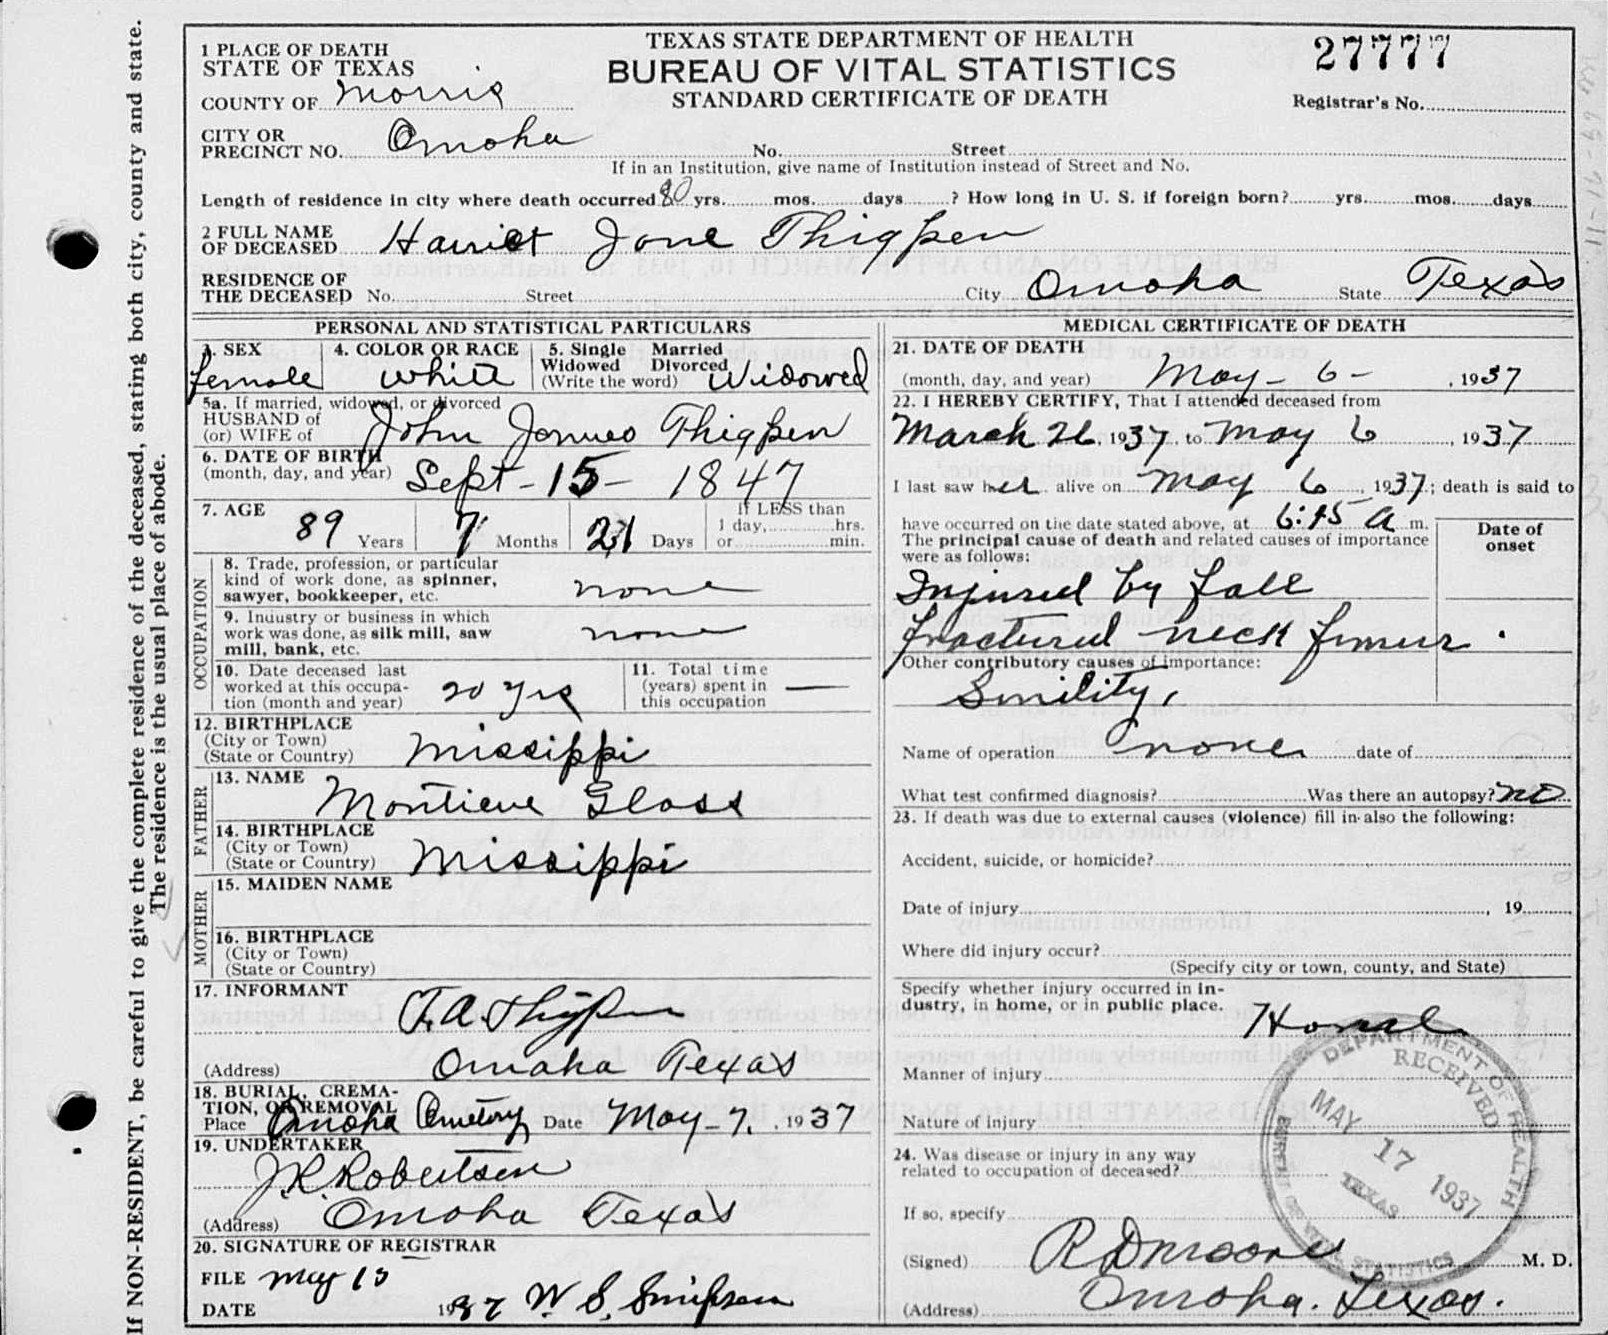 If NON-RESIDENT, be careful to give the complete residence of the deceased, stating both city, county and state.
The residence is the usual place of abode.
1 PLACE OF DEATH
STATE OF TEXAS
COUNTY OF Morris
TEXAS STATE DEPARTMENT OF HEALTH
BUREAU OF VITAL STATISTICS
STANDARD CERTIFICATE OF DEATH
27777
Registrar's No.
CITY OR
PRECINCT NO. Omaha No. Street
If in an Institution, give name of Institution instead of Street and No.
Length of residence in city where death occurred 80 yrs. mos. days ? How long in U. S. if foreign born? yrs. mos. days
2 FULL NAME
OF DECEASED Harriet Jane Thigpen
RESIDENCE OF
THE DECEASED No. Street City Omaha State Texas
PERSONAL AND STATISTICAL PARTICULARS
3. SEX
female
4. COLOR OR RACE
white
5. Single Married
Widowed Divorced
(Write the word) Widowed
5a. If married, widowed, or divorced
HUSBAND of
(or) WIFE of John James Thigpen
6. DATE OF BIRTH
(month, day, and year) Sept - 15 - 1847
7. AGE
89 Years 7 Months 21 Days
if LESS than
1 day, hrs.
or min.
OCCUPATION
8. Trade, profession, or particular
kind of work done, as spinner,
sawyer, bookkeeper, etc. none
9. Industry or business in which
work was done, as silk mill, saw
mill, bank, etc. none
10. Date deceased last
worked at this occupa-
tion (month and year) 20 yrs
11. Total time
(years) spent in
this occupation —
12. BIRTHPLACE
(City or Town)
(State or Country) Missippi
FATHER
13. NAME
Glass
14. BIRTHPLACE
(City or Town)
(State or Country) Missippi
MOTHER
15. MAIDEN NAME
16. BIRTHPLACE
(City or Town)
(State or Country)
17. INFORMANT
Thigpen
(Address) Omaha Texas
18. BURIAL, CREMA-
TION, OR REMOVAL
Place Omaha Cemetory Date May - 7. , 1937
19. UNDERTAKER
J.R. Robertson
(Address) Omaha Texas
20. SIGNATURE OF REGISTRAR
FILE May 15
DATE 1937 W. S. Simpson
MEDICAL CERTIFICATE OF DEATH
21. DATE OF DEATH
(month, day, and year) May - 6 - , 1937
22. I HEREBY CERTIFY, That I attended deceased from
March 26, 1937, to May 6, 1937
I last saw her alive on May 6, 1937; death is said to
have occurred on the date stated above, at 6:45 a m.
The principal cause of death and related causes of importance
were as follows:
Date of
onset
Injured by fall
fractured neck femur.
Other contributory causes of importance:
Smility,
Name of operation none date of
What test confirmed diagnosis? Was there an autopsy? no
23. If death was due to external causes (violence) fill in also the following:
Accident, suicide, or homicide?
Date of injury , 19
Where did injury occur?
(Specify city or town, county, and State)
Specify whether injury occurred in in-
dustry, in home, or in public place.
Manner of injury
Nature of injury
24. Was disease or injury in any way
related to occupation of deceased?
If so, specify
(Signed) R D Moore M. D.
(Address) Omaha. Texas.
DEPARTMENT OF HEALTH
RECEIVED
MAY 17 1937
TEXAS
BUREAU OF VITAL STATISTICS